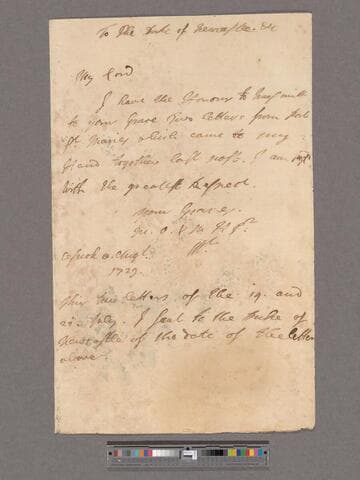 To the Duke of Newcastle. &c
My Lord
I have the Honour to transmitt
to your Grace two letters from Port
St Maries which came to my
Hand together last post. I am
With the greatest Respect.
your Graces.
M. O. & H.
Augt.
1729.
This two letters of the 19. and
July. I sent to the Duke of
Newcastle of the date of the letter
above.